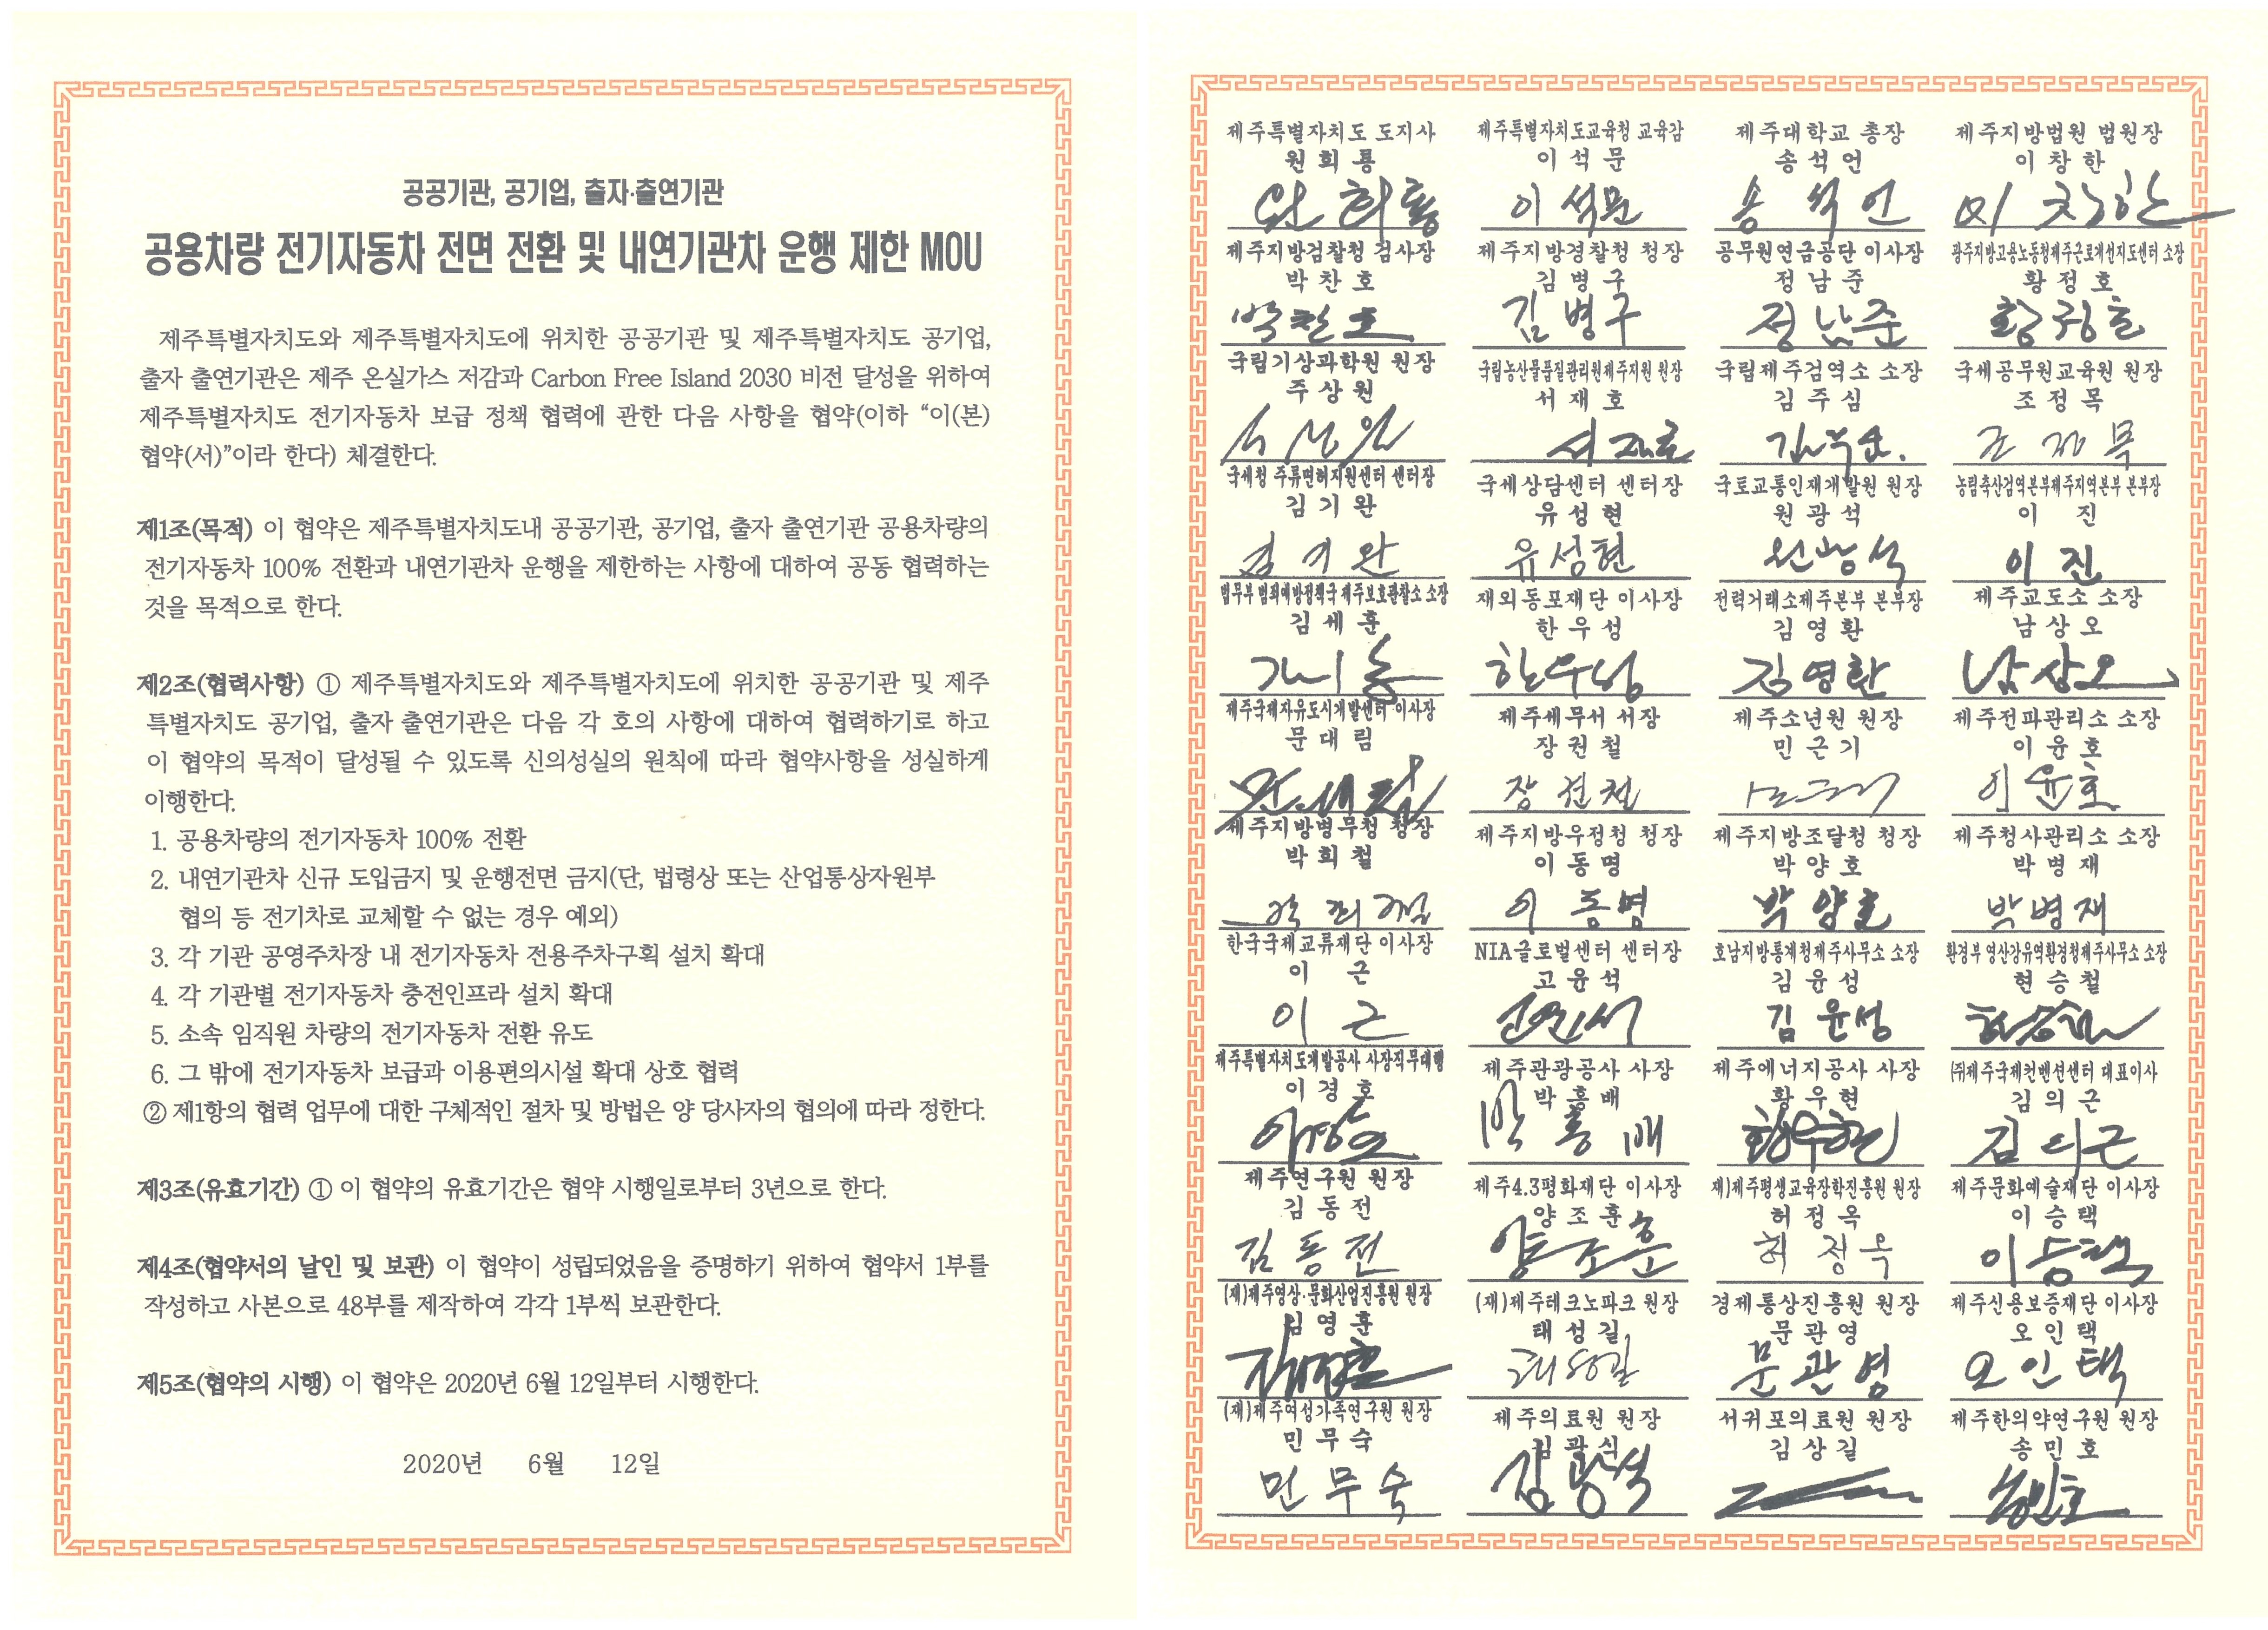 공공기관, 공기업, 출자·출연기관
공용차량 전기자동차 전면 전환 및 내연기관차 운행 제한 MOU
제주특별자치도와 제주특별자치도에 위치한 공공기관 및 제주특별자치도 공기업,
출자 출연기관은 제주 온실가스 저감과 Carbon Free Island 2030 비전 달성을 위하여
제주특별자치도 전기자동차 보급 정책 협력에 관한 다음 사항을 협약(이하 “이(본)
협약(서)”이라 한다) 체결한다.
제1조(목적) 이 협약은 제주특별자치도내 공공기관, 공기업, 출자 출연기관 공용차량의
전기자동차 100% 전환과 내연기관차 운행을 제한하는 사항에 대하여 공동 협력하는
것을 목적으로 한다.
제2조(협력사항) ① 제주특별자치도와 제주특별자치도에 위치한 공공기관 및 제주
특별자치도 공기업, 출자 출연기관은 다음 각 호의 사항에 대하여 협력하기로 하고
이 협약의 목적이 달성될 수 있도록 신의성실의 원칙에 따라 협약사항을 성실하게
이행한다.
1. 공용차량의 전기자동차 100% 전환
2. 내연기관차 신규 도입금지 및 운행전면 금지(단, 법령상 또는 산업통상자원부
협의 등 전기차로 교체할 수 없는 경우 예외)
3. 각 기관 공영주차장 내 전기자동차 전용주차구획 설치 확대
4. 각 기관별 전기자동차 충전인프라 설치 확대
5. 소속 임직원 차량의 전기자동차 전환 유도
6. 그 밖에 전기자동차 보급과 이용편의시설 확대 상호 협력
② 제1항의 협력 업무에 대한 구체적인 절차 및 방법은 양 당사자의 협의에 따라 정한다.
제3조(유효기간) ① 이 협약의 유효기간은 협약 시행일로부터 3년으로 한다.
제4조(협약서의 날인 및 보관) 이 협약이 성립되었음을 증명하기 위하여 협약서 1부를
작성하고 사본으로 48부를 제작하여 각각 1부씩 보관한다.
제5조(협약의 시행) 이 협약은 2020년 6월 12일부터 시행한다.
2020년 6월 12일
제주특별자치도 도지사 제주특별자치도교육청 교육감 제주대학교 총장 제주지방법원 법원장
원희룡 이석문 송석언 이창한
원희룡 이석문 송석언 이창한
제주지방검찰청 검사장 제주지방경찰청 청장 공무원연금공단 이사장 광주지방고용노동청제주근로개선지도센터 소장
박찬호 김병구 정남준 황정호
박찬호 김병구 정남준 황정호
국립기상과학원 원장 국립농산물품질관리원제주지원 원장 국립제주검역소 소장 국세공무원교육원 원장
주상원 서재호 김주심 조정목
서재호 조정목
국세청 주류면허지원센터 센터장 국세상담센터 센터장 국토교통인재개발원 원장 농림축산검역본부제주지역본부 본부장
김기완 유성현 원광석 이 진
김기완 유성현 원광석 이진
법무부 범죄예방정책국 제주보호관찰소 소장 재외동포재단 이사장 전력거래소제주본부 본부장 제주교도소 소장
김세훈 한우성 김영환 남상오
한우성 김영환 남상오
제주국제자유도시개발센터 이사장 제주세무서 서장 제주소년원 원장 제주전파관리소 소장
문대림 장권철 민근기 이윤호
문대림 장권철 이윤호
제주지방병무청 청장 제주지방우정청 청장 제주지방조달청 청장 제주청사관리소 소장
박희철 이동명 박양호 박병재
박희철 이동명 박양호 박병재
한국국제교류재단 이사장 NIA글로벌센터 센터장 호남지방통계청제주사무소 소장 환경부 영산강유역환경청제주사무소 소장
이 근 고윤석 김윤성 현승철
이근 김윤성
제주특별자치도개발공사 사장직무대행 제주관광공사 사장 제주에너지공사 사장 ㈜제주국제컨벤션센터 대표이사
이경호 박홍배 황우현 김의근
이경호 박홍배 황우현 김의근
제주연구원 원장 제주4.3평화재단 이사장 재)제주평생교육장학진흥원 원장 제주문화예술재단 이사장
김동전 양조훈 허정옥 이승택
김동전 양조훈 허정옥 이승택
(재)제주영상·문화산업진흥원 원장 (재)제주테크노파크 원장 경제통상진흥원 원장 제주신용보증재단 이사장
김영훈 태성길 문관영 오인택
태성길 문관영 오인택
(재)제주여성가족연구원 원장 제주의료원 원장 서귀포의료원 원장 제주한의약연구원 원장
민무숙 김광식 김상길 송민호
민무숙 송민호